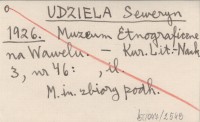 UDZIELA Seweryn
1926. Muzeum Etnograficzne
na Wawelu. — Kur. Lit-Nauk
3, nr 46: , il.
M.in. zbiory podh.